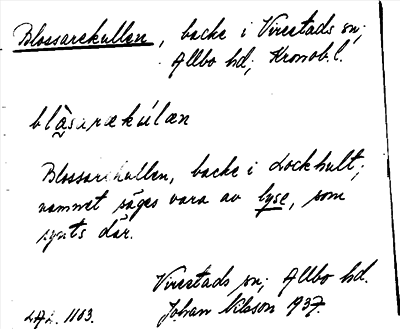 Blossarekullen, backe i Virestads sn;
Allbo hd; Kronob. l.
blåsarækúlæn
Blossarekullen, backe i Lockhult;
namnet säges vara av lyse, som
synts där.
Virestads sn; Allbo hd.
LAL. 1103. Johan Nilsson 1937.